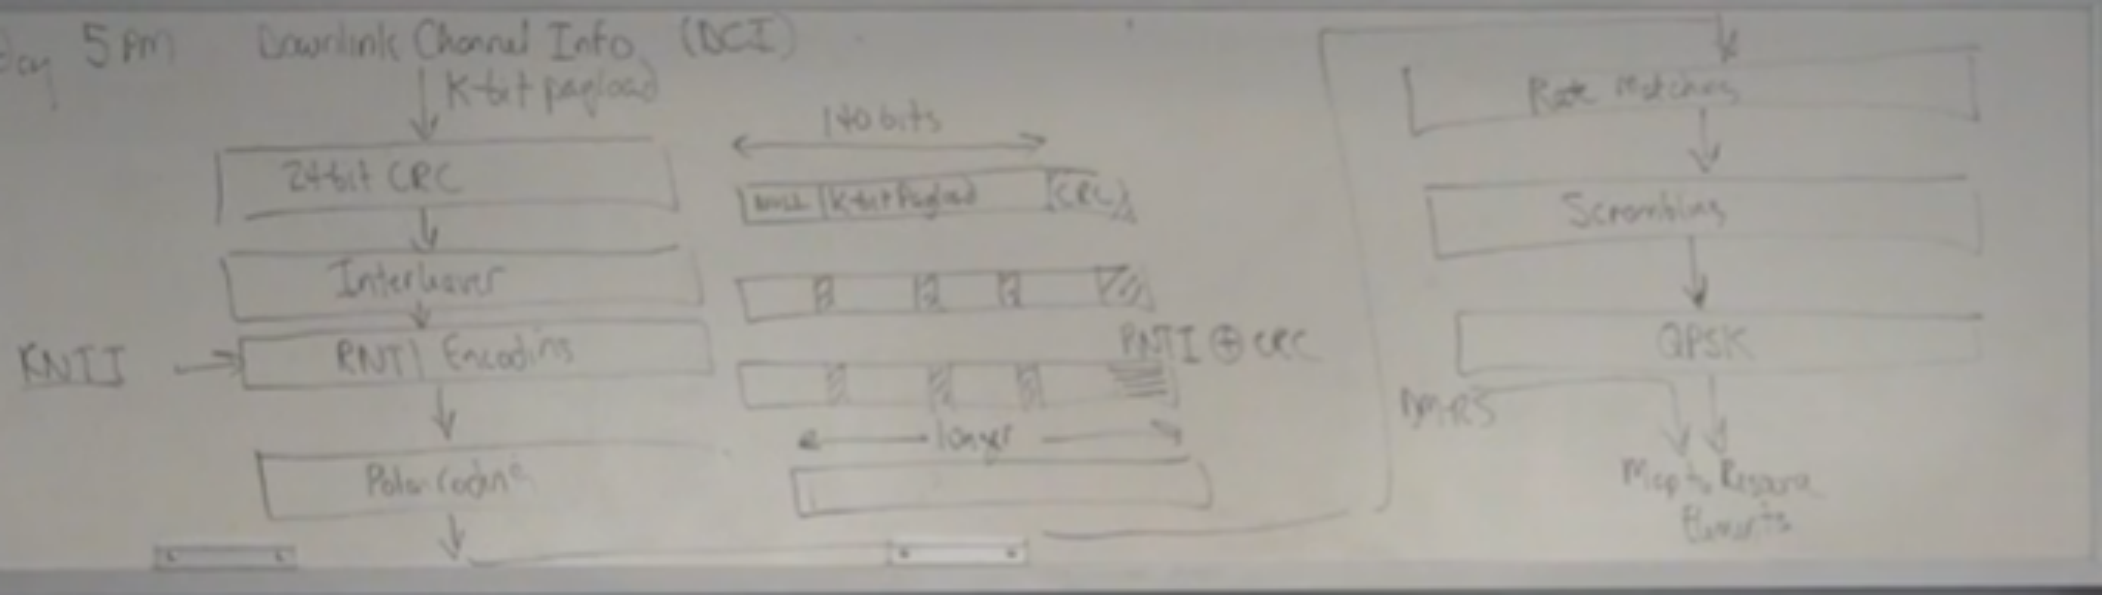 day 5 pm Downlink Channel Info (DCI)
K-bit payload
24-bit CRC
Interleaver
RNTI → RNTI Encoding
Polar Coding
140 bits
NULL K-bit Payload CRC
RNTI ⊕ CRC
longer
Rate Matching
Scrambling
QPSK
DM-RS
Map to Resource
Elements